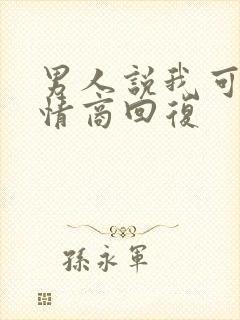 男人説我可
情商回復
孫永軍